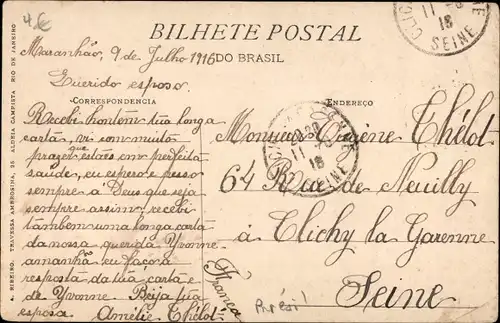 4.€
BILHETE POSTAL
DO BRASIL
Maranhão, 9 de Julho 1916
Querido esposo
CORRESPONDENCIA
Recebi hontem tua longa
carta, vi com muito
prazer que estães em perfeita
saúde, eu espero e peso
sempre a Deus que seja
sempre assim, recebi
tambem uma longa carta
da nossa querida Yvonne
amanhã eu faco a
resposta da tua carta e
de Yvonne. Beija tua
esposa Amélie Thélot
ENDEREÇO
Monsieur Eugène Thélot
64 Rue de Neuilly
à Clichy la Garenne
Seine
França
Parési!
A. RIBEIRO, TRAVESSA AMBROSINA, 23, ALDEIA CAMPISTA RIO DE JANEIRO
CLICHY
11
18
SEINE
20
11
18
SEINE